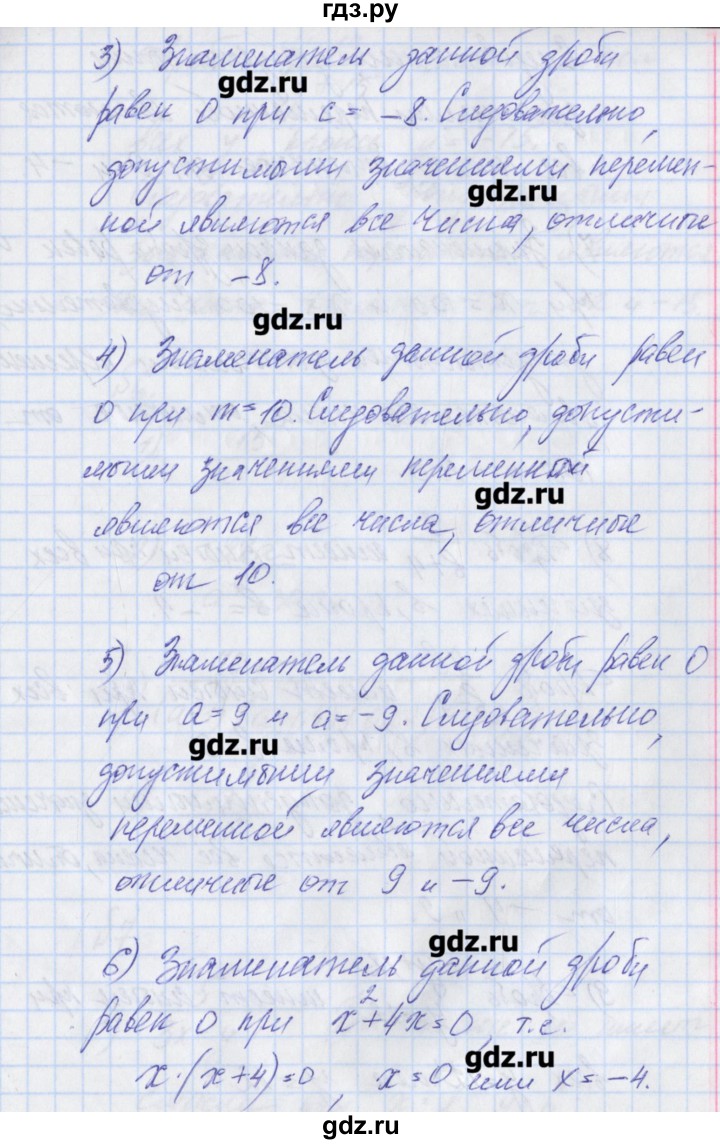 гдз.ру
3) Знаменатель данной дроби
gdz.ru
равен 0 при c = -8. Следовательно,
допустимыми значениями перемен-
gdz.ru
ной являются все числа, отличные
от -8.
gdz.ru
4) Знаменатель данной дроби равен
0 при m=10. Следовательно, допусти-
мыми значениями переменной
gdz.ru
являются все числа, отличные
от 10.
5) Знаменатель данной дроби равен 0
при a=9 и a=-9. Следовательно,
gdz.ru
допустимыми значениями
переменной являются все числа,
отличные от 9 и -9.
gdz.ru
6) Знаменатель данной дроби
равен 0 при x²+4x=0, т.е.
gdz.ru
x·(x+4)=0, x=0 или x=-4.
gdz.ru